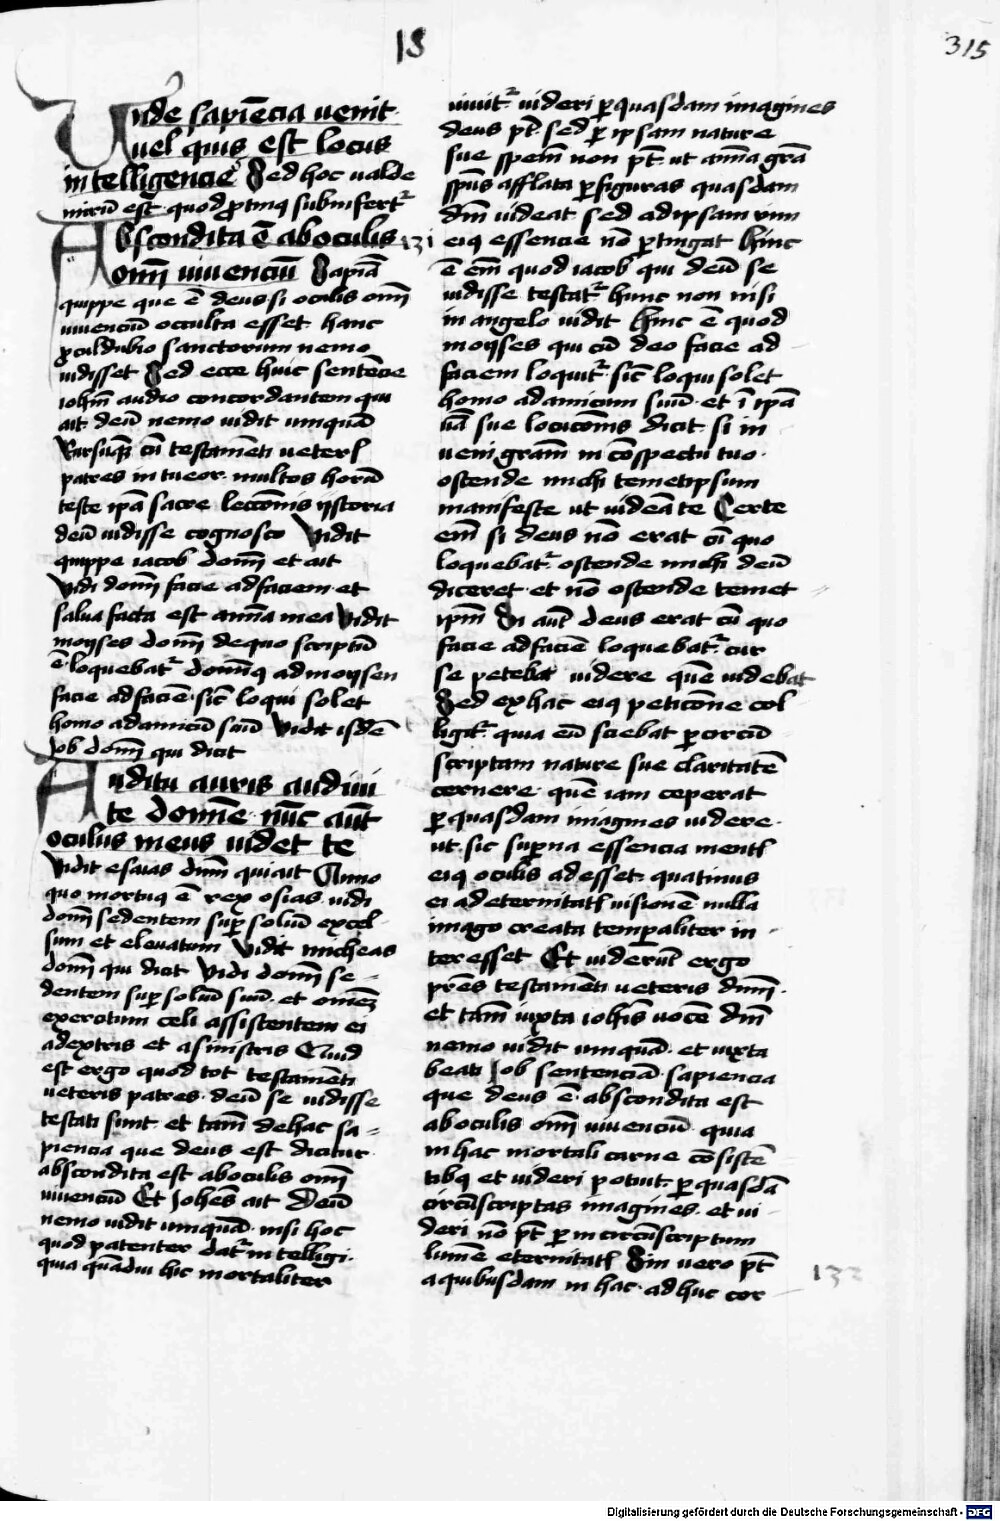 18
315
Unde sapiẽcia uenit
uel quis est locus
intelligencie Sed hoc ualde
mirũ est quod ꝓtinꝰ subinfertᷣ
Abscondita ẽ ab oculis 131
om̃i uiuenciũ Sapiã
quippe que ẽ deus si oculis om̃i
uiuenciũ occulta esset hanc
ꝓculdubio sanctorum nemo
uidisset Sed ecce huic sentẽcie
ioh̃m audio concordantem qui
ait deũ nemo uidit umquã
Rursusqꝫ cũ testamẽti ueteris
patres intueor multos horũ
teste ip̃a sacre lecc̃onis ystoria
deũ uidisse cognosco Vidit
quippe iacob dom̃ et ait
Vidi dom̃ facie ad faciem et
salua facta est anĩa mea Vidit
moyses dom̃ de quo scriptũ
ẽ loquebatᷣ domĩnꝰ ad moysen
facie ad faciẽ sic̃ loqui solet
homo ad amicũ suũ Vidit isdẽ
Job dom̃ qui dicit
Auditu auris audiui
te domĩe nũc aũt
oculus meus uidet te
Vidit esaias dñm qui ait Anno
quo mortuꝰ ẽ rex osias uidi
dom̃ sedentem suꝑ soliũ excel
sum et eleuatum Vidit micheas
dom̃ qui dicit Vidi dom̃ se-
dentem suꝑ soliũ suũ et omẽꝫ
exercitum celi assistentem ei
a dextris et a sinistris Quid
est ergo quod tot testamẽti
ueteris patres deũ se uidisse
testati sunt et tam̃ de hac sa-
piencia que deus est dicitur
abscondita est ab oculis om̃i
uiuenciũ Et Johẽs ait Deũ
nemo uidit umquã nisi hoc
quod patenter datᷣ intelligi
quia quãdiu hic mortaliter
uiuitᷣ uideri ꝑ quasdam imagines
deus pt̃ sed ꝑ ipsam nature
sue spem̃ non pt̃ ut anĩa gr̃a
sp̃us afflata ꝑ figuras quasdam
dm̃ uideat sed ad ipsam uim
eiꝰ essencie nõ ꝑtingat Hinc
ẽ em̃ quod iacob qui deũ se
uidisse testatᷣ hunc non nisi
in angelo uidit Hinc ẽ quod
moyses qui cũ deo facie ad
faciem loquitᷣ sic̃ loqui solet
homo ad amicum suũ et ĩ ip̃a
uã sue locuc̃onis dicit si in
ueni gram̃ in cõspectu tuo
ostende michi temetipsum
manifeste ut uideã te Certe
em̃ si deus nõ erat cũ quo
loquebatᷣ ostende michi deũ
diceret et nõ ostende temet
ipm̃ Si aut̃ deus erat cũ quo
facie ad faciẽ loquebatᷣ cur
se petebat uidere quẽ uidebat
Sed ex hac eiꝰ peticõne col
ligitᷣ quia eũ sciebat ꝑ circũ
scriptam nature sue claritatẽ
cernere quẽ iam ceperat
ꝑ quasdam imagines uidere
ut sic suꝑna essencia mentis
eiꝰ oculis adesset quatinus
ei ad eternitatis uisionẽ nulla
imago creata temꝑaliter in
teresset Et uiderũt ergo
pr̃es testamẽti ueteris dñm
et tam̃ iuxta ioh̃is uocẽ dm̃
nemo uidit umquã et iuxta
beati Job sentenciã sapiencia
que deus ẽ abscondita est
ab oculis om̃i uiuenciũ quia
in hac mortali carne cõsistẽ
tibꝰ et uideri potuit ꝑ quasdã
circũscriptas imagines et ui
deri nõ pt̃ ꝑ incircũscriptum
lumẽ eternitatis Sin uero pt̃
a quibusdam in hac adhuc cor 132
Digitalisierung gefördert durch die Deutsche Forschungsgemeinschaft - DFG